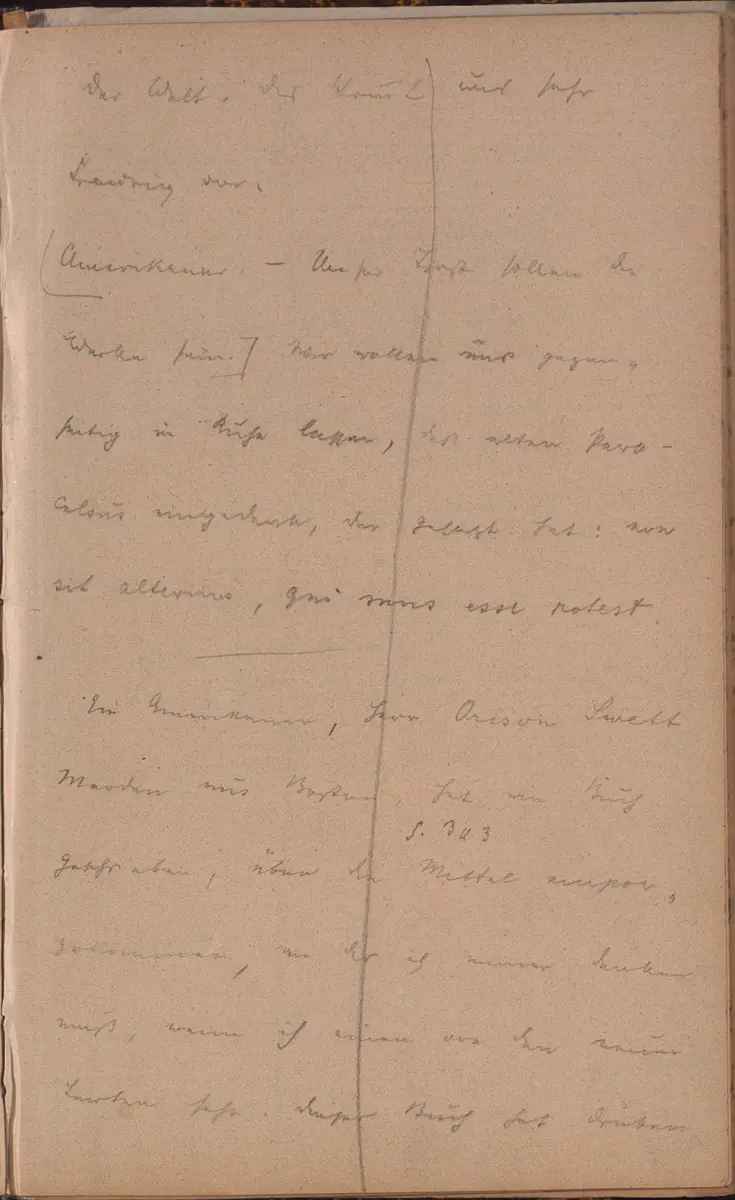 der Welt, der Kunst) und sehr
traurig vor.
(Amerikaner. — Unser Trost sollen die
Werke sein.] Wir wollen uns gegen-
seitig in Ruhe lassen, des alten Para-
celsus eingedenk, der gesagt hat: non
sit alterius, qui suus esse potest.
Ein Amerikaner, Herr Orison Swett
Marden aus Boston, hat ein Buch
S. 303
geschrieben, über die Mittel empor-
zukommen, an das ich immer denken
muß, wenn ich einen von den neuen
Leuten sehe. Dieses Buch hat drüben